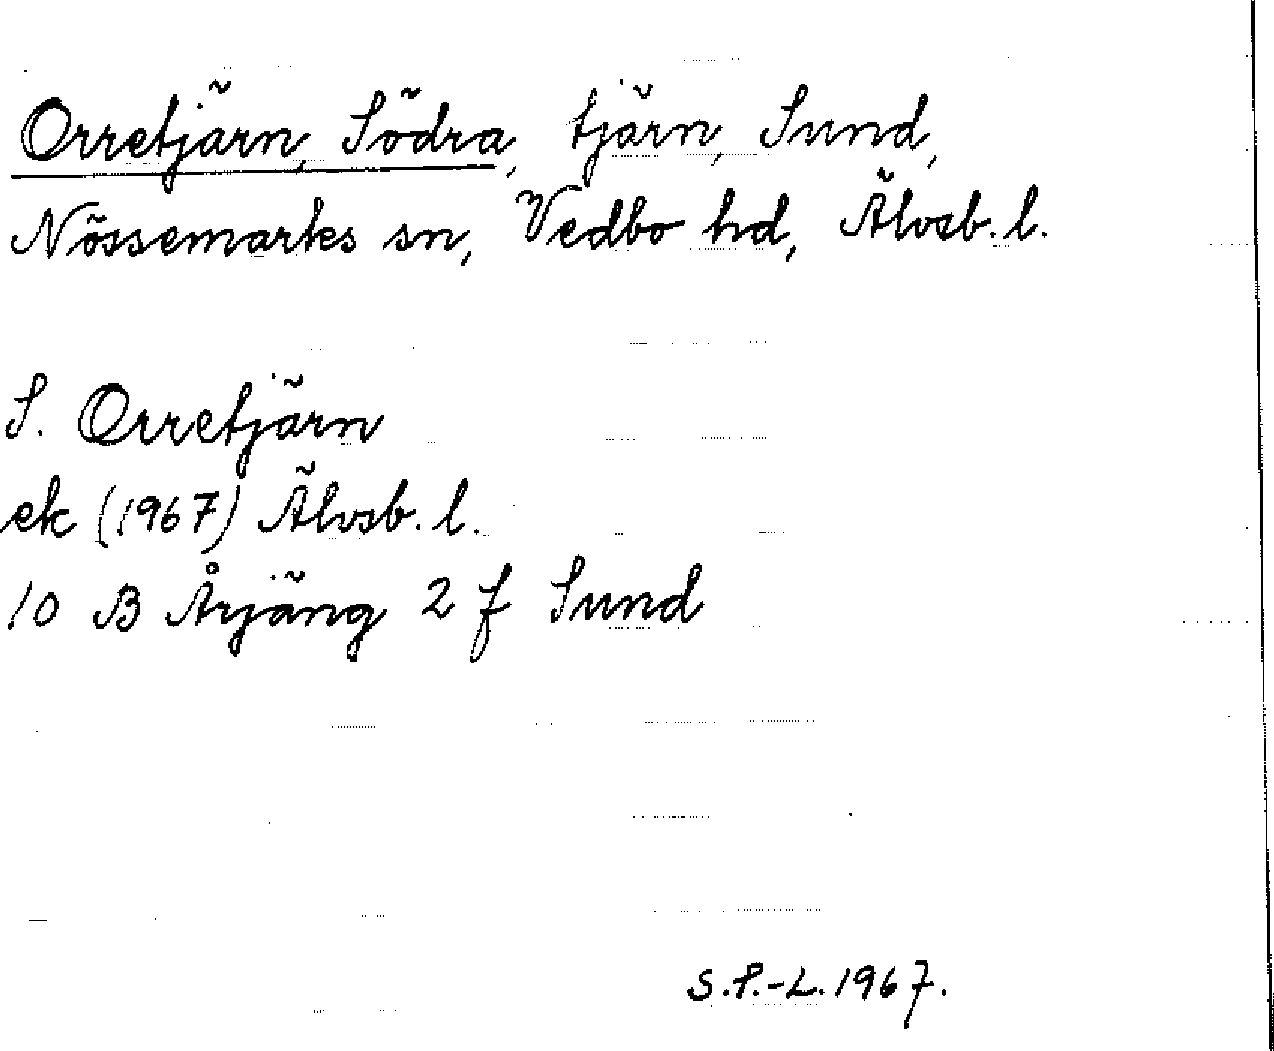 Orretjärn, Södra, tjärn, Sund,
Nössemarks sn, Vedbo hd, Älvsb. l.
S. Orretjärn
ek (1967) Älvsb. l.
10 B Årjäng 2 f Sund
S.P.-L. 1967.